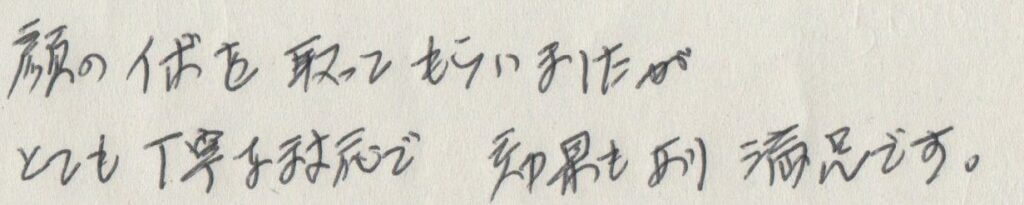 顔のイボを取ってもらいましたが
とても丁寧な対応で 効果も有り 満足です。